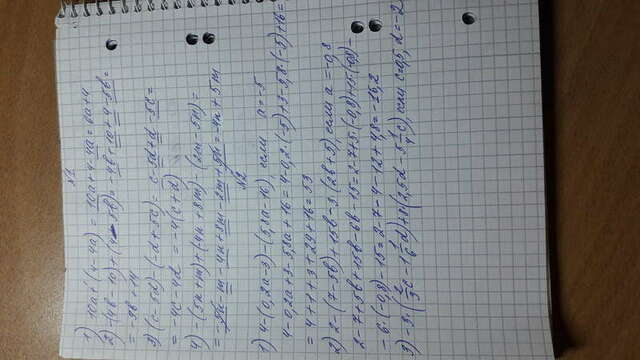 №1
1) 10a+(4-4a) = 10a+4-4a = 6a+4
2) -(4b-10)+(4-5b)= -4b+10+4-5b=
= -9b+14
3) (c-5d)-(-d+5c)= c-5d+d-5c=
= -4c-4d = -4(c+d)
4) -(5n+m)+(4n+8m)-(2m-5n)=
= -5n-m-4n+8m-2m+5n=-4n+5m
№2
1) 4-(0,2a-3)-(5,8a-16), если a=-5
4-0,2a+3-5,8a+16=4-0,2·(-5)+3-5,8·(-5)+16=
= 4+1+3+29+16=53
2) 2-(7-5b)+15b-3·(2b+5), если a=-0,8
2-7+5b+15b-6b-15=2-7+5·(-0,8)+15·(-0,8)-
-6·(-0,8)-15=2-7-4-12+4,8=-16,2
3) -3·(2/3c-1 1/6d)+8·(2,5d-5 1/4c), если c=0,5, d=-2